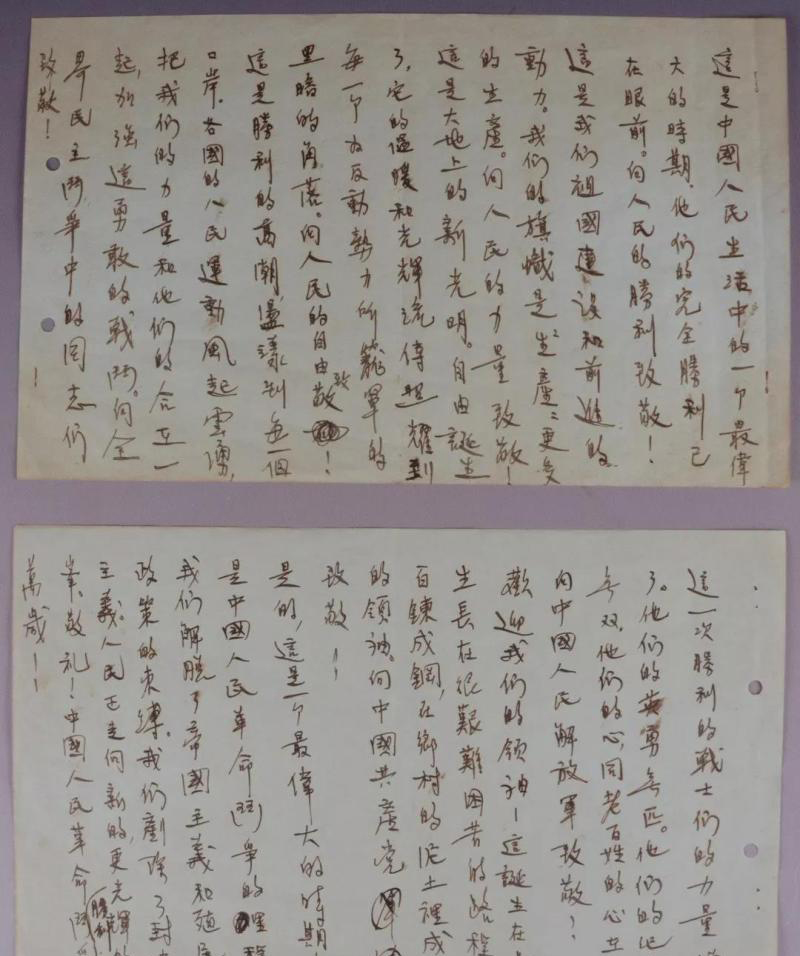 這是中國人民生活中的一个最偉
大的時期．他们的完全勝利已
在眼前。向人民的勝利致敬！
這是我们祖國建設和前進的
動力。我们的旗幟是"生產"更多
的生產。向人民的力量致敬！
這是大地上的新光明。自由誕生
了，它的溫暖和光輝流傳照耀到
每一个为反動勢力所籠罩的
黑暗的角落。向人民的自由致敬！
這是勝利的高潮，盪漾到每一個
口岸．各國的人民運動風起雲湧，
把我们的力量和他们的合在一
起，加強這勇敢的戰鬥。向全
界民主鬥爭中的同志们
致敬！
這一次勝利的戰士们的力量
了。他们的英勇無匹。他们的
無双．他们的心，同老百姓的心在
向中國人民解放軍致敬！
歡迎我们的領袖－這誕生在
生長在很艱難困苦的路程
百鍊成鋼，在鄉村的泥土裡成
的領袖。向中國共產党
致敬！！
是的，這是一个最偉大的時期
是中國人民革命鬥爭的里程
我们解脫了帝國主義和殖民
政策的束縛．我们剷除了封
主義。人民正走向新的，更光輝的 勝利
業，敬礼！中國人民革命鬥
萬歲！！